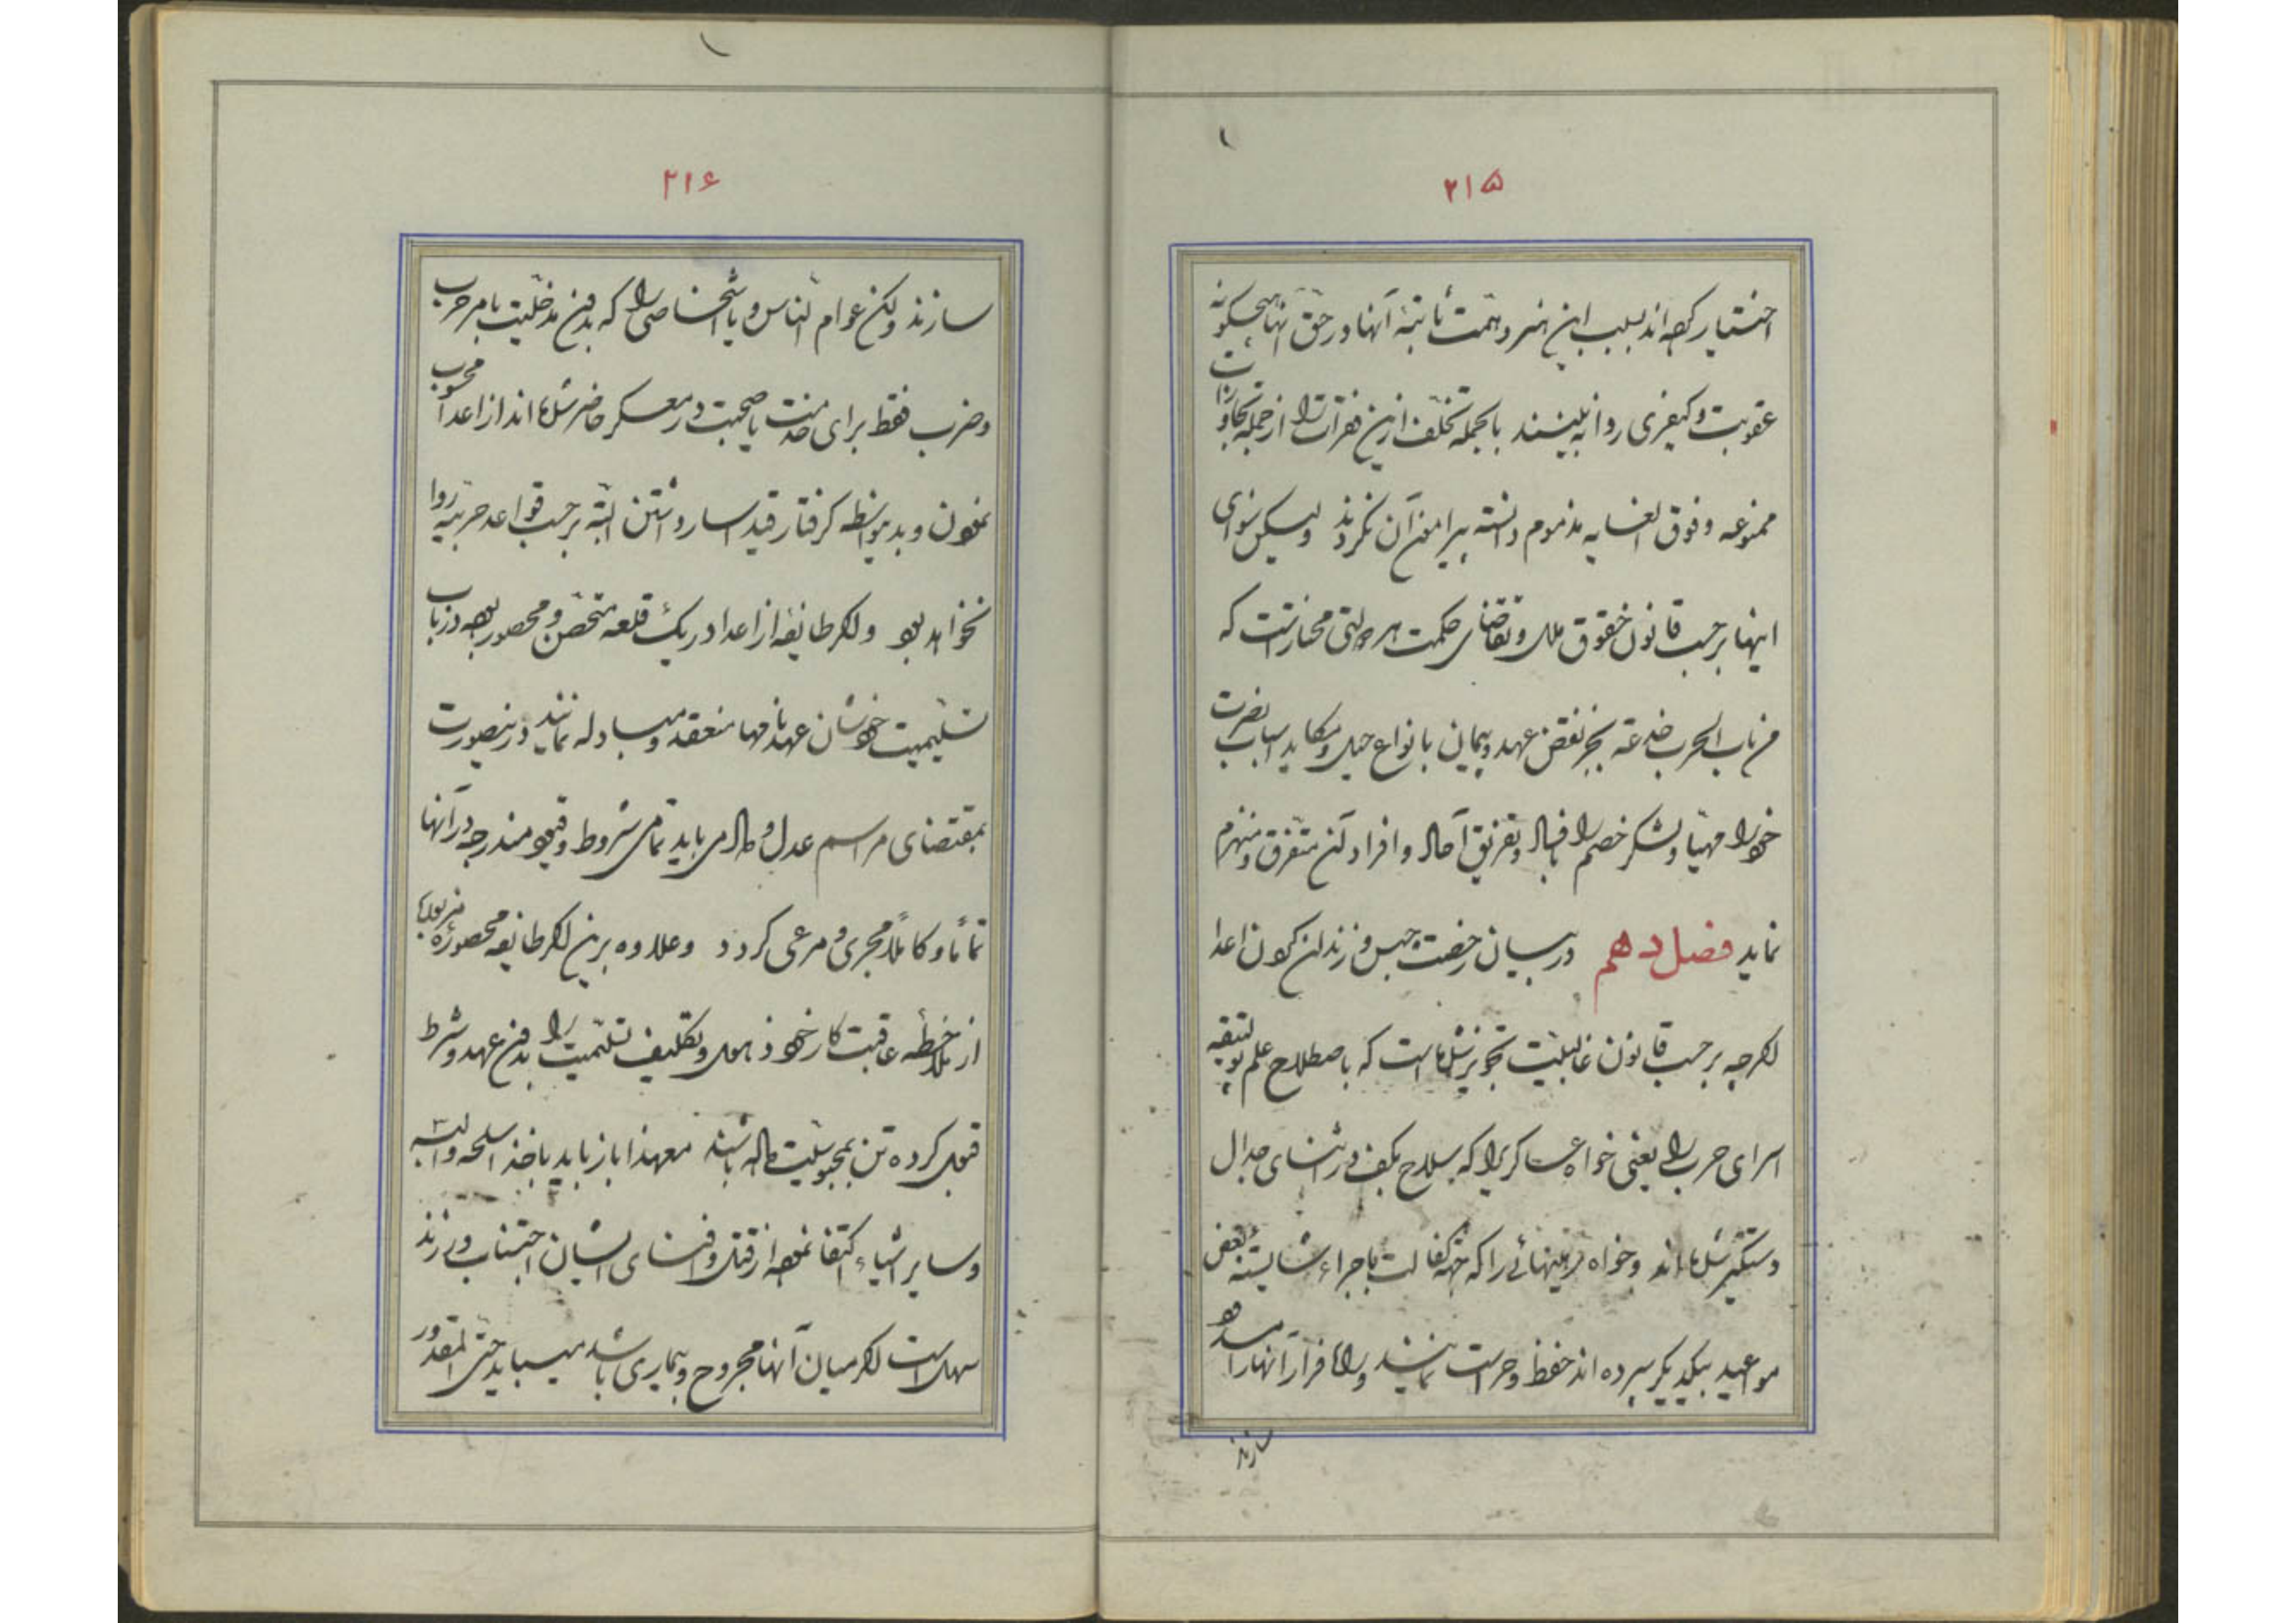 ۲۱۵
اختیار کرده‌اند بسبب این هنر و همّت ثابتهٔ آنها در حقّ آنها هیچگونه
عقوبت و کیفری روا نه بینند بالجمله تخلّف ازین فقرات را از جمله تجاوزات
ممنوعه و فوق الغایه مذموم دانسته پیرامون آن نگردند ولیکن سوای
اینها برحسب قانون حقوق ملل و تقاضای حکمت هر دولتی مختار است که
من باب الحرب خدعة بجز نقض عهد و پیمان بانواع حیل و مکاید اسباب نصرت
خود را مهیّا و لشکر خصم را و تفریق آحاد و افراد کند متفرّق و منهزم
نماید فصل دهم در بیان رخصت حبس و زندان کردن اعدا
اگرچه برحسب قانون غالبیّت تجویز شده است که باصطلاح علم
اسرای حرب را یعنی خواه عساکریرا که بسلاح بکف در اثنای جدال
دستگیر شده‌اند و خواه رهینهائی را که بجهة کفالت باجراء شایستهٔ بعض
مواعید بیکدیگر سپرده‌اند حفظ و حراست نمایند و راه فرار آنها را مسدود
سازند
۲۱۶
سازند ولکن عوام النّاس و یا اشخاصی را که بدون مدخلیّت بامر حرب
و ضرب فقط برای خدمت یا صحبت در معسکر حاضر شده‌اند از اعدا محسوب
نمودن و بدینواسطه گرفتار قید اسار داشتن البتّه برحسب قواعد حربیّه روا
نخواهد بود و اگر طائفه از اعدا در یک قلعه متحصّن و محصور بوده در باب
تسلیمیت خودشان عهدنامها منعقد و مبادله نمایند در ینصورت
بمقتضای مراسم عدل و داد می باید تمامی شروط و قیود مندرجه در آنها
تماماً و کاملاً مجری و مرعی گردد و علاوه برین اگر طایفه محصورهٔ مزبوره
از ملاحظه عاقبت کار خود ذهول و تکلیف تسلیمیت را بدون عهد و شرط
قبول کرده تن بمحبوسیّت داده باشند معهذا باز باید باخذ اسلحه و البسه
و سایر اشیاء اکتفا نموده از قتل و افنای ایشان اجتناب ورزند
سهل است اگر میان آنها مجروح و بیماری باشد میباید حتّی المقدور